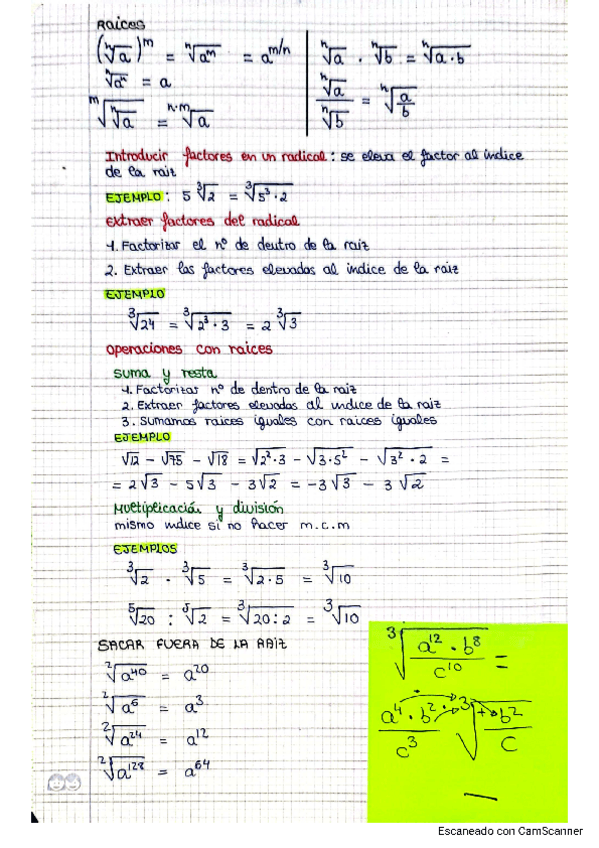 Raíces
(ⁿ√a)^m = ⁿ√a^m = a^m/n
ⁿ√aⁿ = a
m√ⁿ√a = n·m√a
ⁿ√a · ⁿ√b = ⁿ√a·b
ⁿ√a / ⁿ√b = ⁿ√a/b
Introducir factores en un radical: se eleva el factor al índice
de la raíz
EJEMPLO: 5 ³√2 = ³√5³·2
extraer factores del radical
1. Factorizar el nº de dentro de la raíz
2. Extraer los factores elevados al índice de la raíz
EJEMPLO
³√24 = ³√2³·3 = 2 ³√3
operaciones con raíces
suma y resta
1. Factorizar nº de dentro de la raíz
2. Extraer factores elevados al índice de la raíz
3. Sumamos raíces iguales con raíces iguales
EJEMPLO
√12 - √75 - √18 = √2²·3 - √3·5² - √3²·2 =
= 2√3 - 5√3 - 3√2 = -3√3 - 3√2
Multiplicación y división
mismo índice si no hacer m.c.m
EJEMPLOS
³√2 · ³√5 = ³√2·5 = ³√10
⁵√20 : ⁵√2 = ³√20:2 = ³√10
SACAR FUERA DE LA RAÍZ
²√a⁴⁰ = a²⁰
²√a⁶ = a³
²√a²⁴ = a¹²
²√a¹²⁸ = a⁶⁴
³√a¹²·b⁸/c¹⁰ =
a⁴·b²/c³ · ³√b²/c
Escaneado con CamScanner